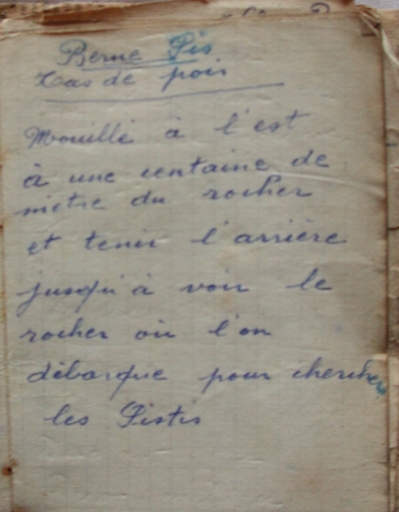 Berne Pis
Tas de pois
Mouillé à l'est
à une centaine de
mètre du rocher
et tenir l'arrière
jusqu'à voir le
rocher où l'on
débarque pour chercher
les Pistis